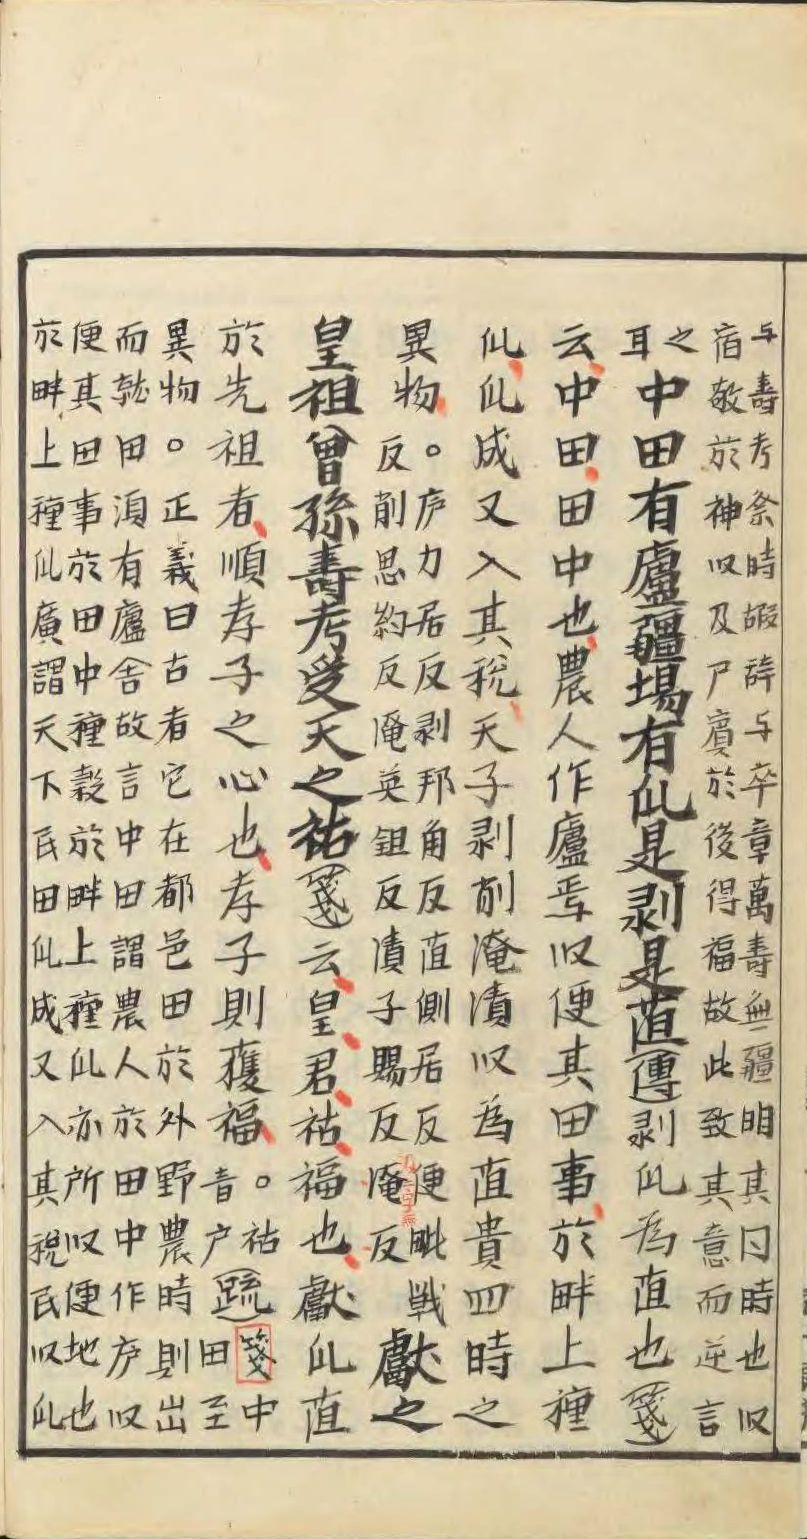 与壽考祭時嘏辞与卒章萬壽無疆明其同時也以
宿敬於神以及尸賓於後得福故此致其意而逆言
之耳中田有廬疆埸有瓜是剥是菹傳剥瓜為菹也箋
云中田田中也農人作廬焉以便其田事於畔上種
瓜瓜成又入其税天子剥削淹漬以為菹貴四時之
異物。庐力居反剥邦角反菹側居反便毗戦
反削思約反淹英鉏反漬子賜反淹反獻之
皇祖曾孫壽考受天之祜箋云皇君祜福也獻瓜菹
於先祖者順孝子之心也孝子則獲福。祜音户疏箋中田至
異物。正義曰古者宅在都邑田於外野農時則出
而就田須有廬舍故言中田謂農人於田中作庐以
便其田事於田中種穀於畔上種瓜亦所以便地也
於畔上種瓜廣謂天下民田瓜成又入其税民以瓜